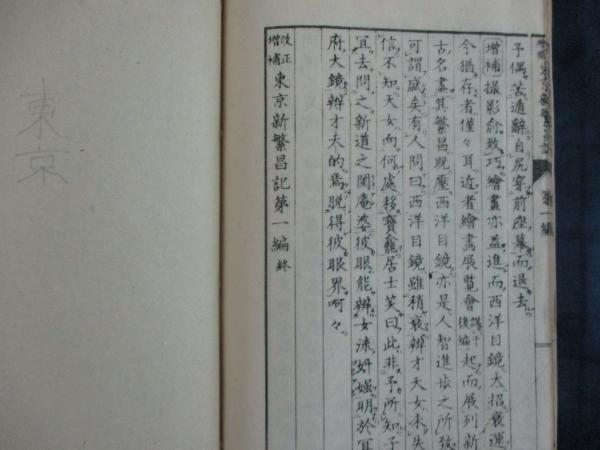 予偶苦遁辭自尻穿前座幕而退去
増補 撮影愈致巧繪畫亦益進而西洋目鏡大招衰運
今猶存者僅々耳近者繪畫展覽會 譲于後編 起而展列新
古名畫其繁昌既壓西洋目鏡亦是人智進歩之所致
可謂盛矣有人問曰西洋目鏡雖稍衰辨才天女未失
信不知天女向何處移寶龕居士笑曰此非予所知子
宜去問之新道之閑庵婆彼眼能辨女流妍媸明於冥
府大鏡辨才天的焉脱得彼眼界呵々
改正増補 東京新繁昌記第一編 終
第一編
東京